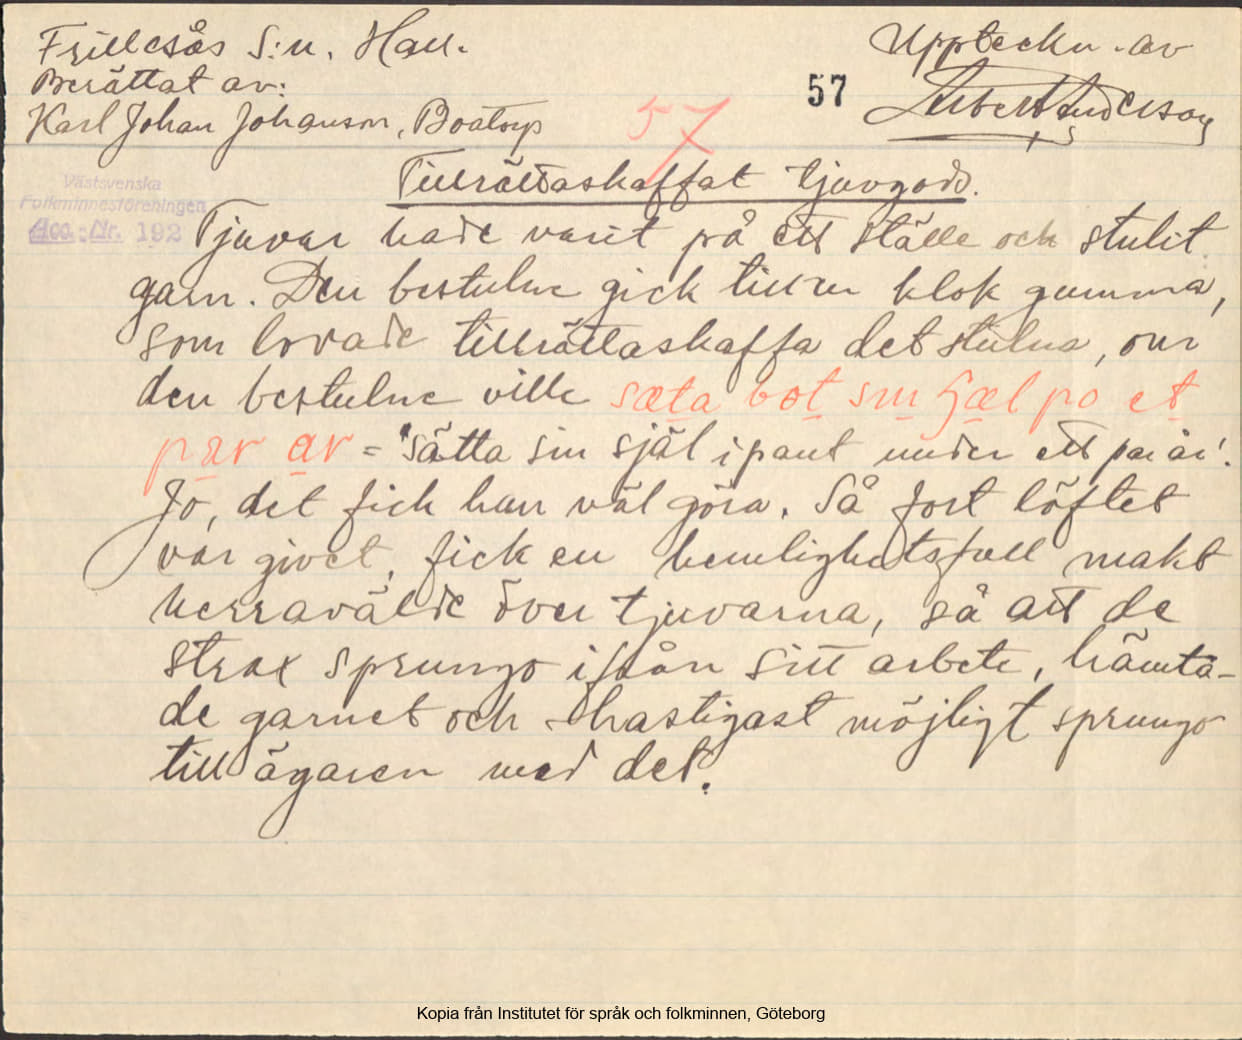 Frillesås S:n, Hall.
Berättat av:
Karl Johan Johanson, Boatorp
Uppteckn. av
57
Albert Anderson
57
Västsvenska
Folkminnesföreningen
Acc.-Nr. 192
Tillrättaskaffat tjuvgods.
Tjuvar hade varit på ett ställe och stulit
garn. Den bestulne gick till en klok gumma,
som lovade tillrättaskaffa det stulna, om
den bestulne ville sæta bot sin sjæl po et
par ar = "sätta sin själ i pant under ett par år".
Jo, det fick han väl göra. Så fort löftet
var givet, fick en hemlighetsfull makt
herravälde över tjuvarna, så att de
strax sprungo ifrån sitt arbete, hämta-
de garnet och hastigast möjligt sprungo
till ägaren med det.
Kopia från Institutet för språk och folkminnen, Göteborg